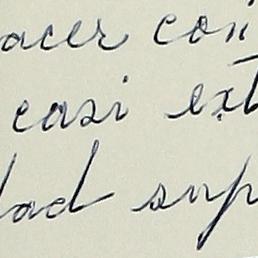 acer con
casi ext
dad sup